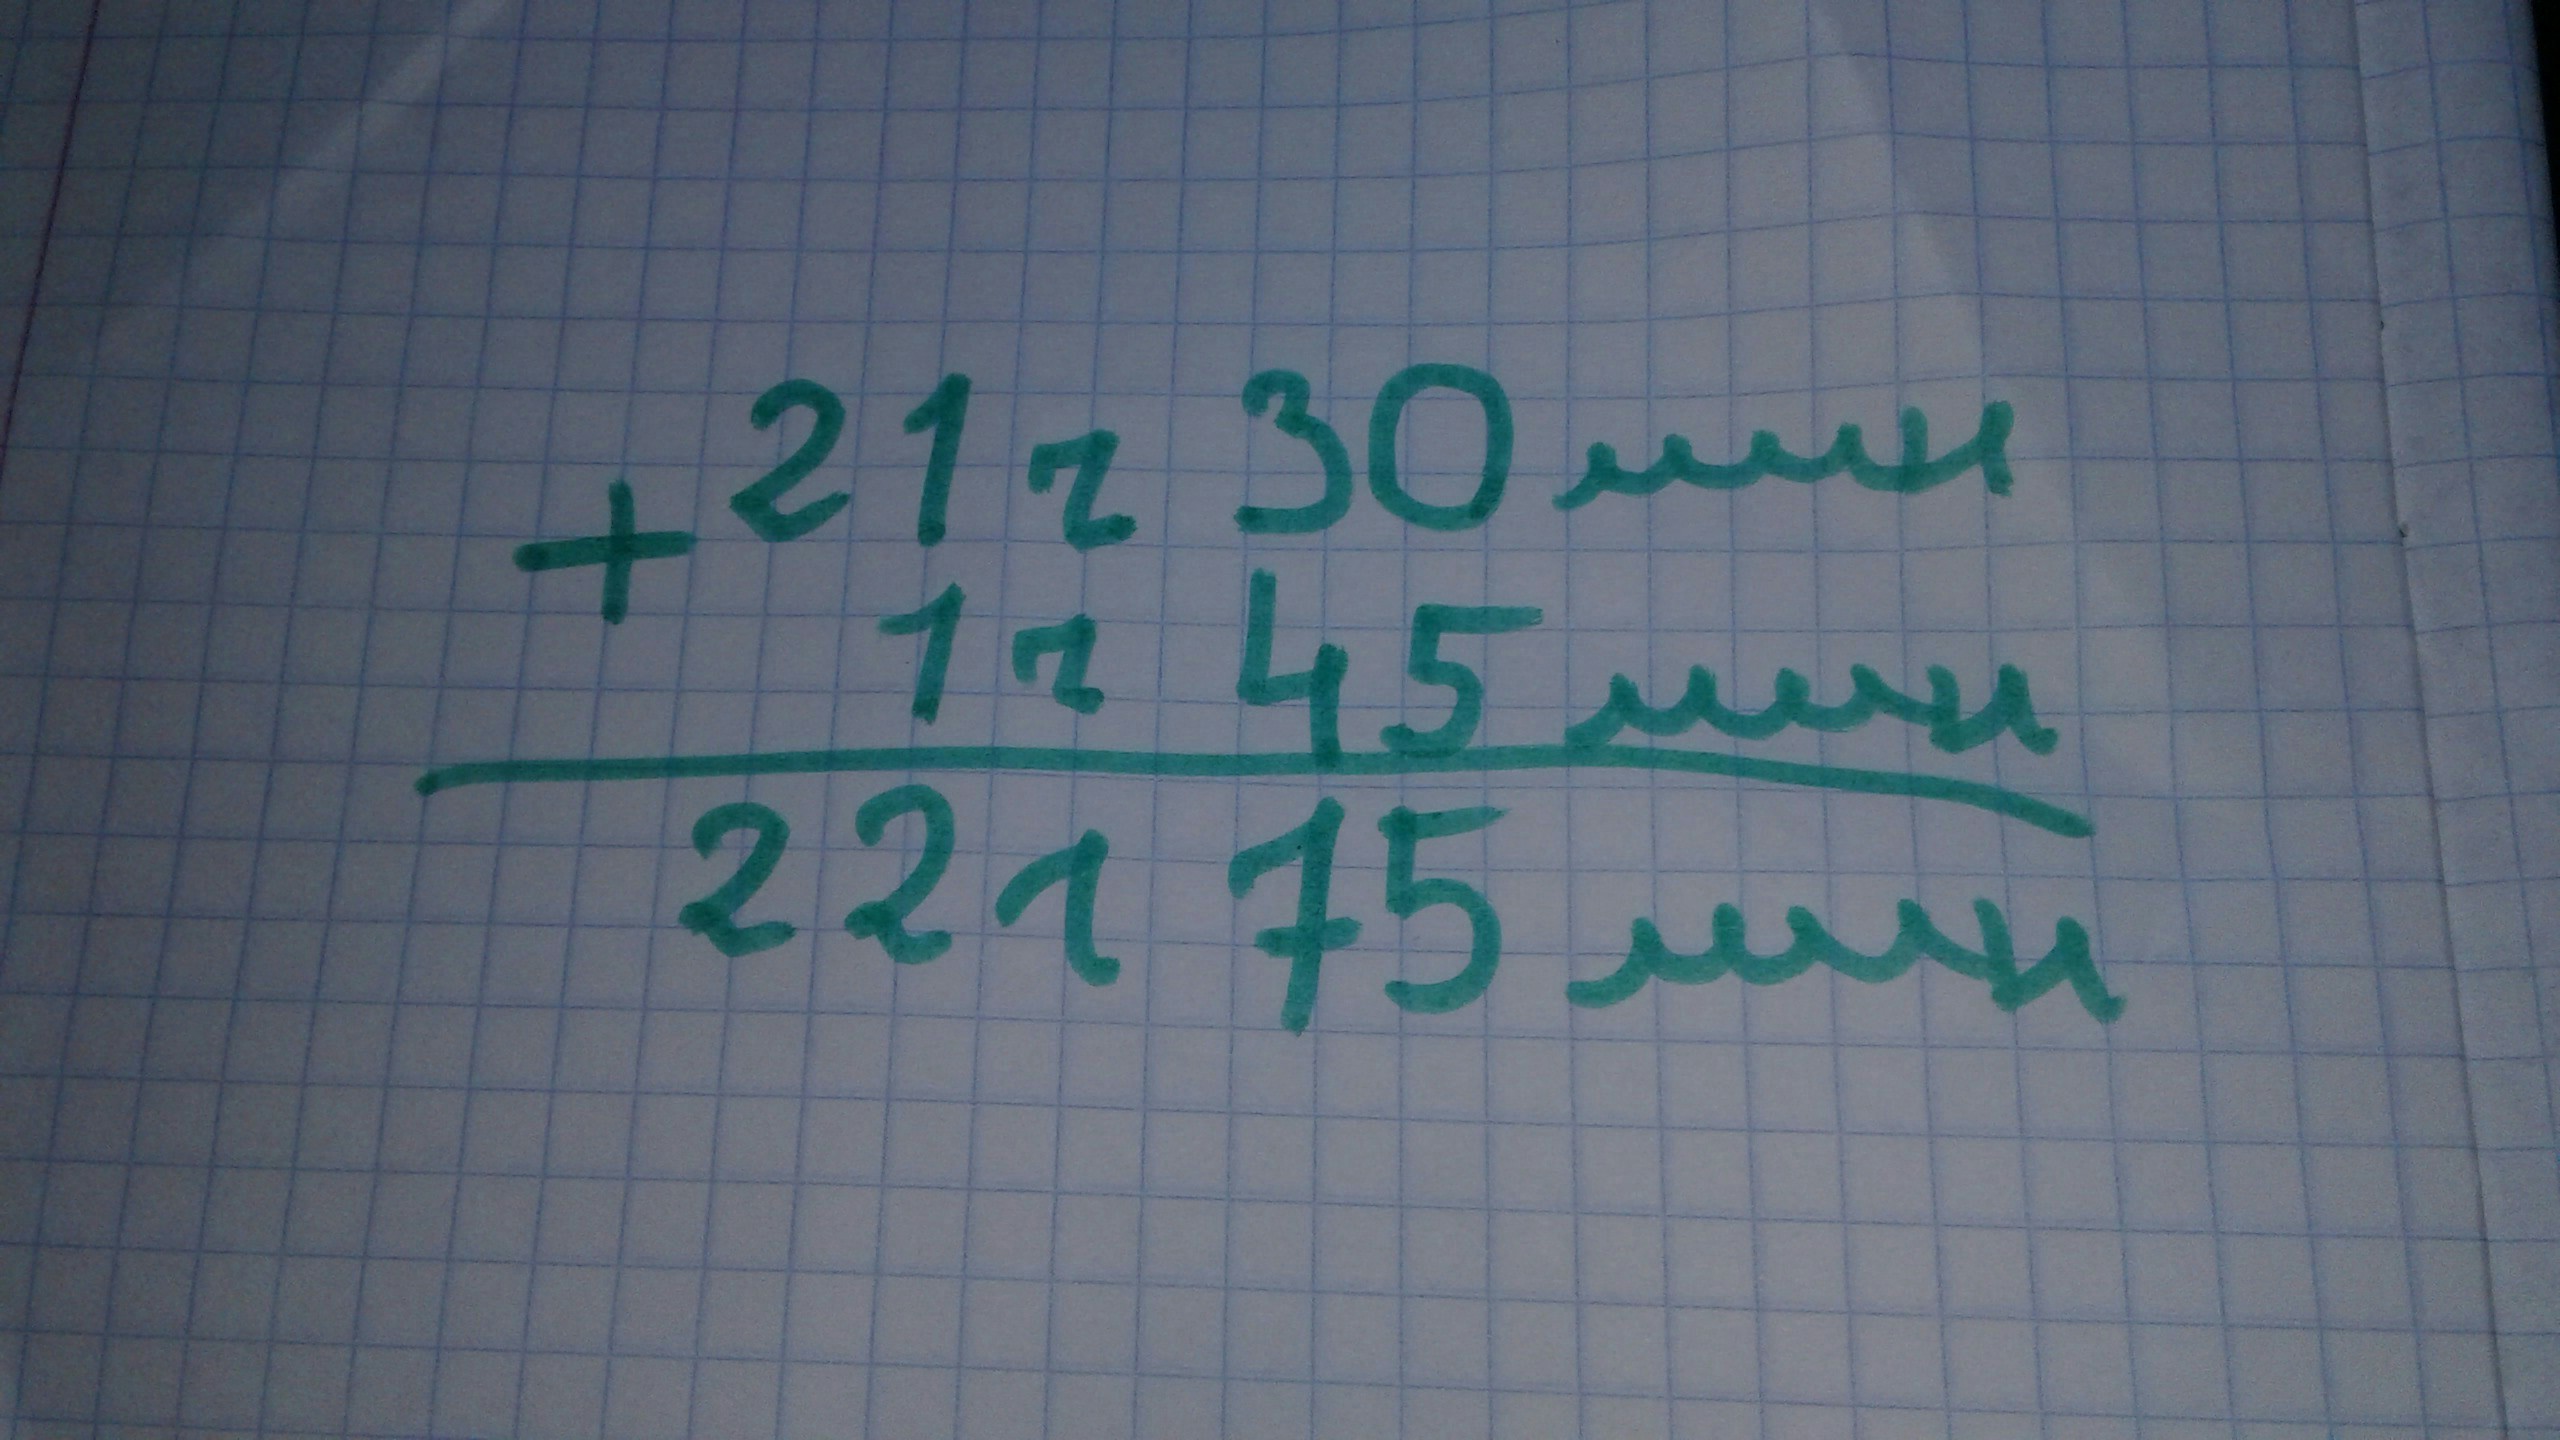 + 21 ч 30 мин
1 ч 45 мин
22 ч 75 мин